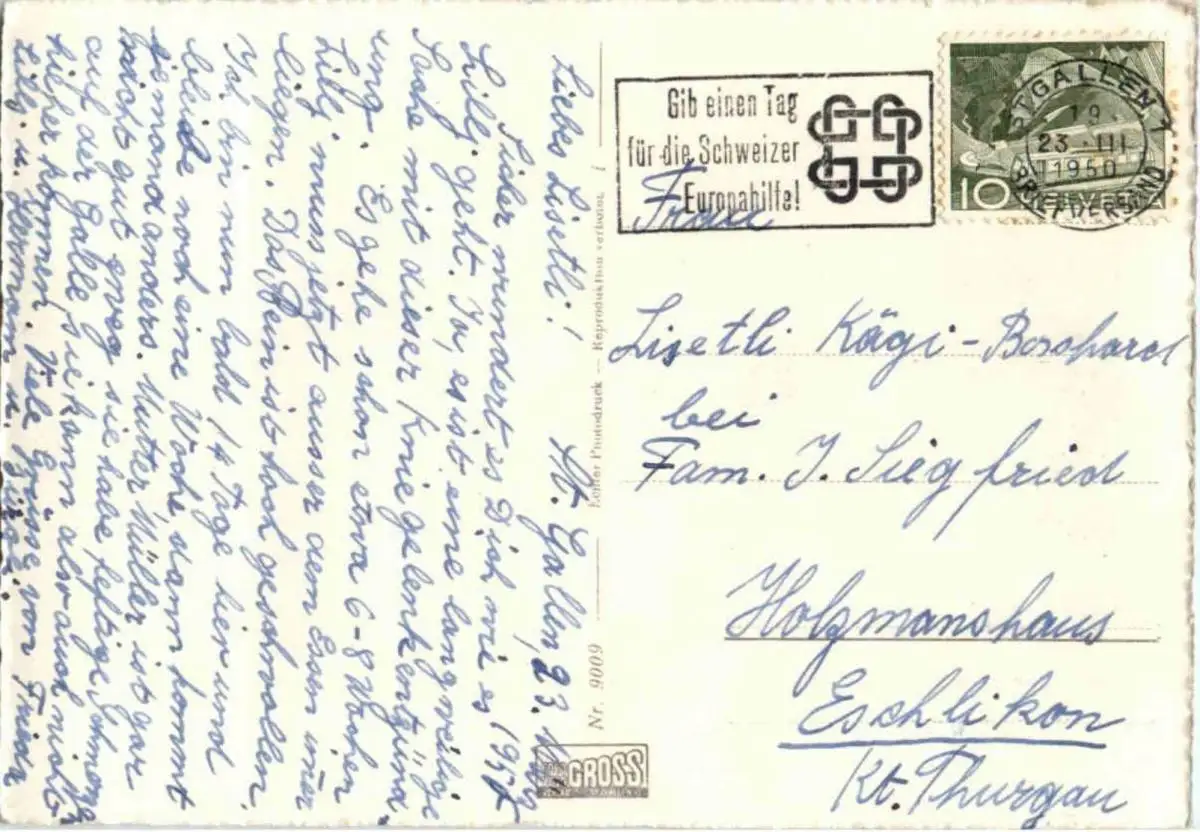 Liebes Lisetli!
St. Gallen, 23. März
1950
Sicher wundert es Dich wie es
Lilly geht. Ja, es ist eine langweilige
Sache mit dieser Kniegelenkentzünd
ung. Es gehe schon etwa 6-8 Wochen
Lilly muss jetzt ausser dem Essen imer
liegen. Das Bein ist hoch geschwollen.
Ich bin nun bald 14 Tage hier und
bleibe noch eine Woche, dann kommt
jemand anders. Mutter Müller ist gar
nicht gut sie habe heftige
auf der Galle, sie kann also auch nicht
hieher kommen. Viele Grüsse von
Lilly u. Hermann u.
Nr. 9009
Echter Photodruck — Reproduktion verboten
GROSS
Gib einen Tag
für die Schweizer
Europahilfe!
ST.GALLEN 1
19
23.III
1950
BRIEFVERSAND
10 HELVETIA
Frau
Lisetli Kägi-Bosshard
bei
Fam. J. Siegfried
Holzmanshaus
Eschlikon
Kt. Thurgau